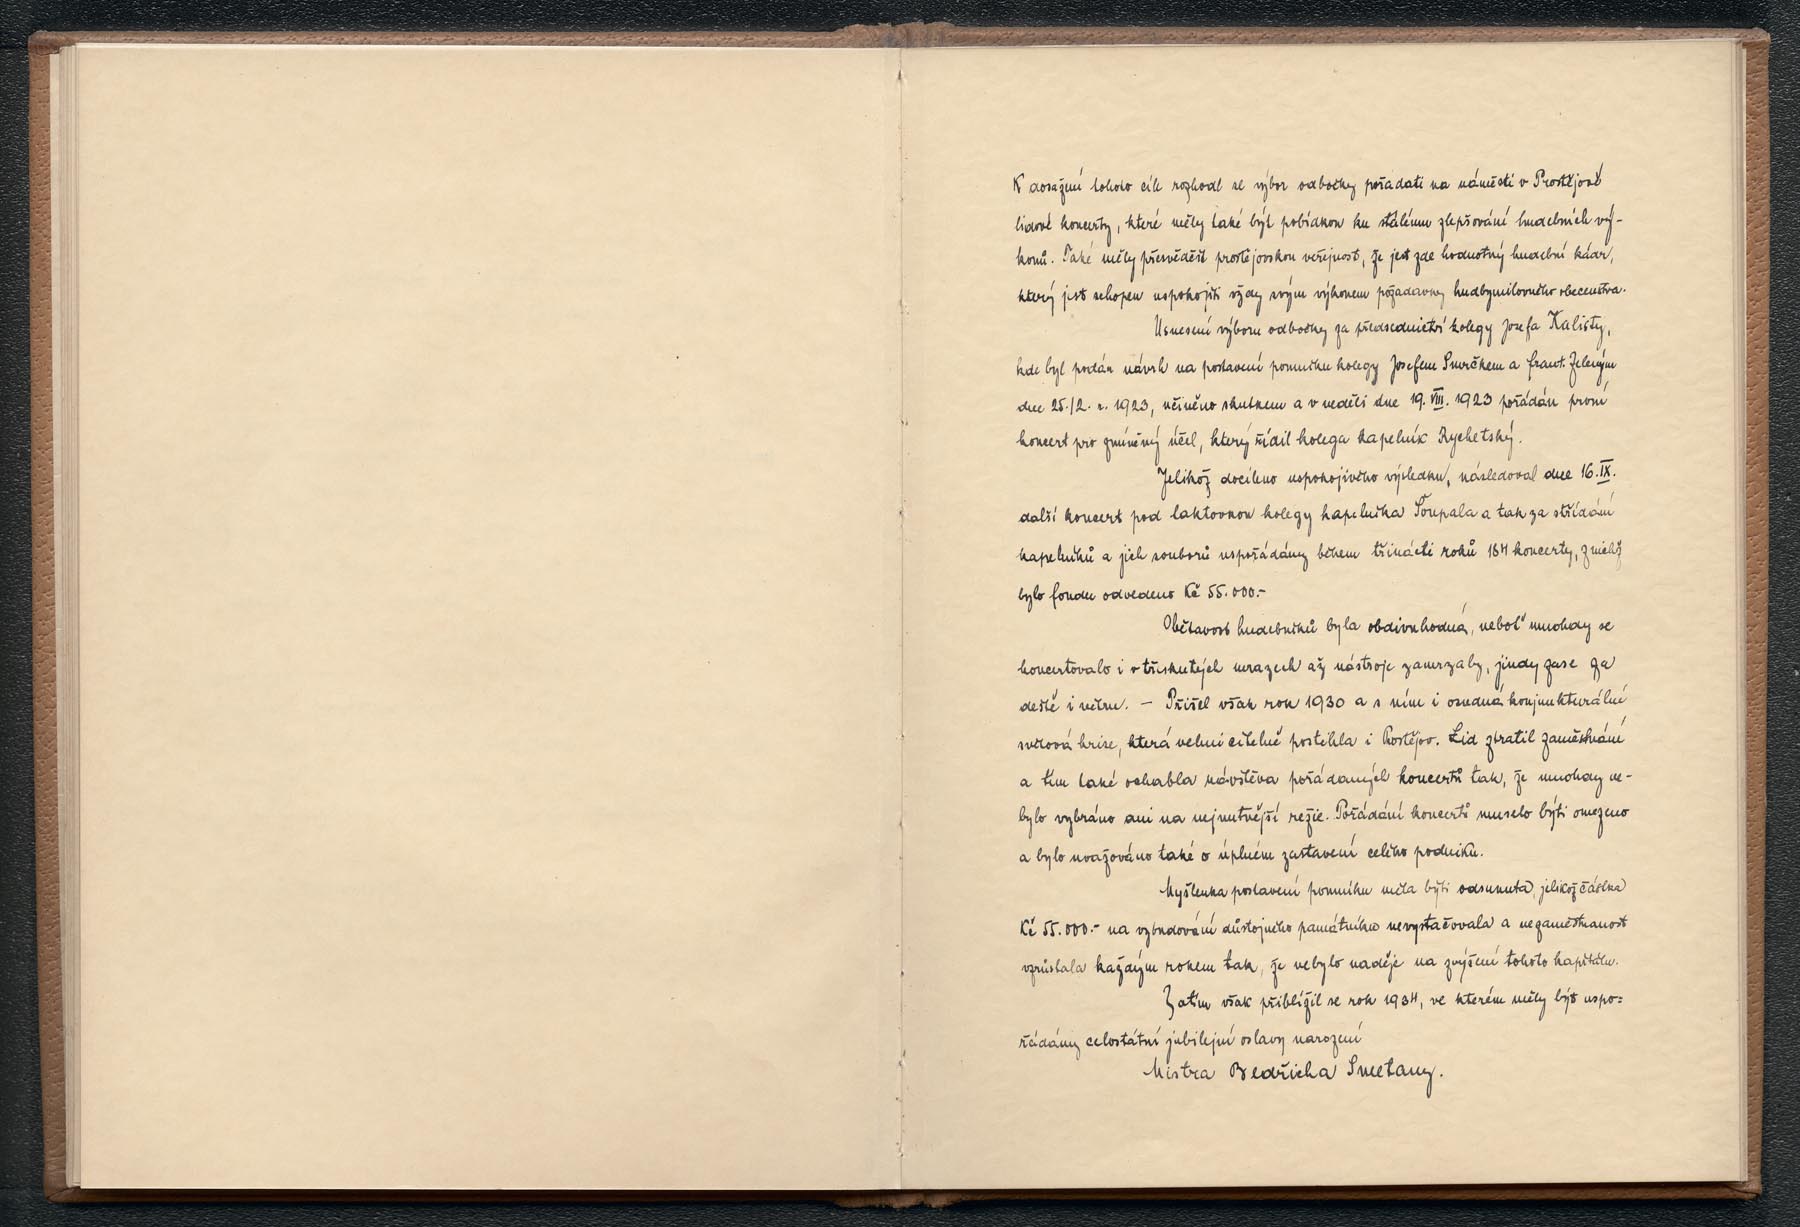 K dosažení tohoto cíle rozhodl se výbor odbočky pořádati na náměstí v Prostějově
lidové koncerty, které měly také být pobídkou ku stálému zlepšování hudebních vý-
konů. Také měly přesvědčit prostějovskou veřejnost, že jest zde hodnotný hudební kádr,
který jest schopen uspokojiti vždy svým výkonem požadavky hudbymilovného obecenstva.
Usnesení výboru odbočky za předsednictví kolegy Josefa Kalisty,
kde byl podán návrh na postavení pomníku kolegy Josefem Smrčkem a frant. Zeleným
dne 25./2. r. 1923, učiněno skutkem a v neděli dne 19. VIII. 1923 pořádán první
koncert pro zmíněný účel, který řídil kolega kapelník Rychetský.
Jelikož docíleno uspokojivého výsledku, následoval dne 16. IX.
další koncert pod taktovkou kolegy kapelníka Soupala a tak za střídání
kapelníků a jich souborů uspořádány během třinácti roků 164 koncerty, z nichž
bylo fondu odvedeno Kč 55.000.-
Obětavost hudebníků byla obdivuhodná, neboť mnohdy se
koncertovalo i v třeskutých mrazech až nástroje zamrzaly, jindy zase za
deště i větru. — Přišel však rok 1930 a s ním i osudná konjunkturální
světová krise, která velmi citelně postihla i Prostějov. Lid ztratil zaměstnání
a tím také ochabla návštěva pořádaných koncertů tak, že mnohdy ne-
bylo vybráno ani na nejnutnější režie. Pořádání koncertů muselo býti omezeno
a bylo uvažováno také o úplném zastavení celého podniku.
Myšlenka postavení pomníku měla býti odsunuta, jelikož částka
Kč 55.000.- na vybudování důstojného památníku nevystačovala a nezaměstnanost
vzrůstala každým rokem tak, že nebylo naděje na zvýšení tohoto kapitálu.
Zatím však přiblížil se rok 1934, ve kterém měly být uspo=
řádány celostátní jubilejní oslavy narození
Mistra Bedřicha Smetany.